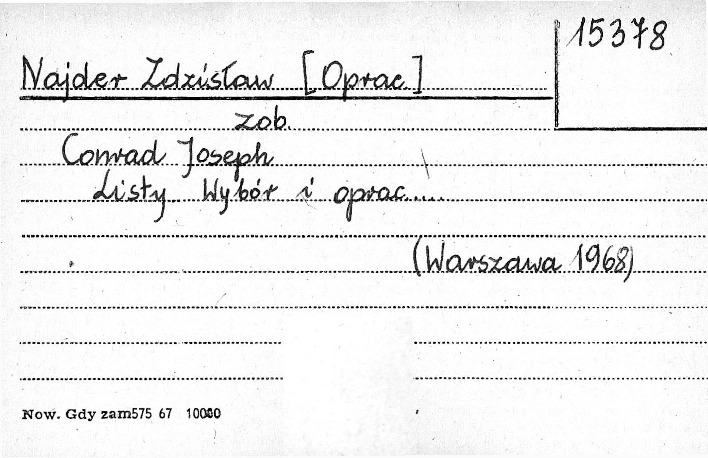 15378
Najder Zdzisław [Oprac.]
zob.
Conrad Joseph
Listy Wybór i oprac.....
(Warszawa 1968)
Now. Gdy zam575 67 10000